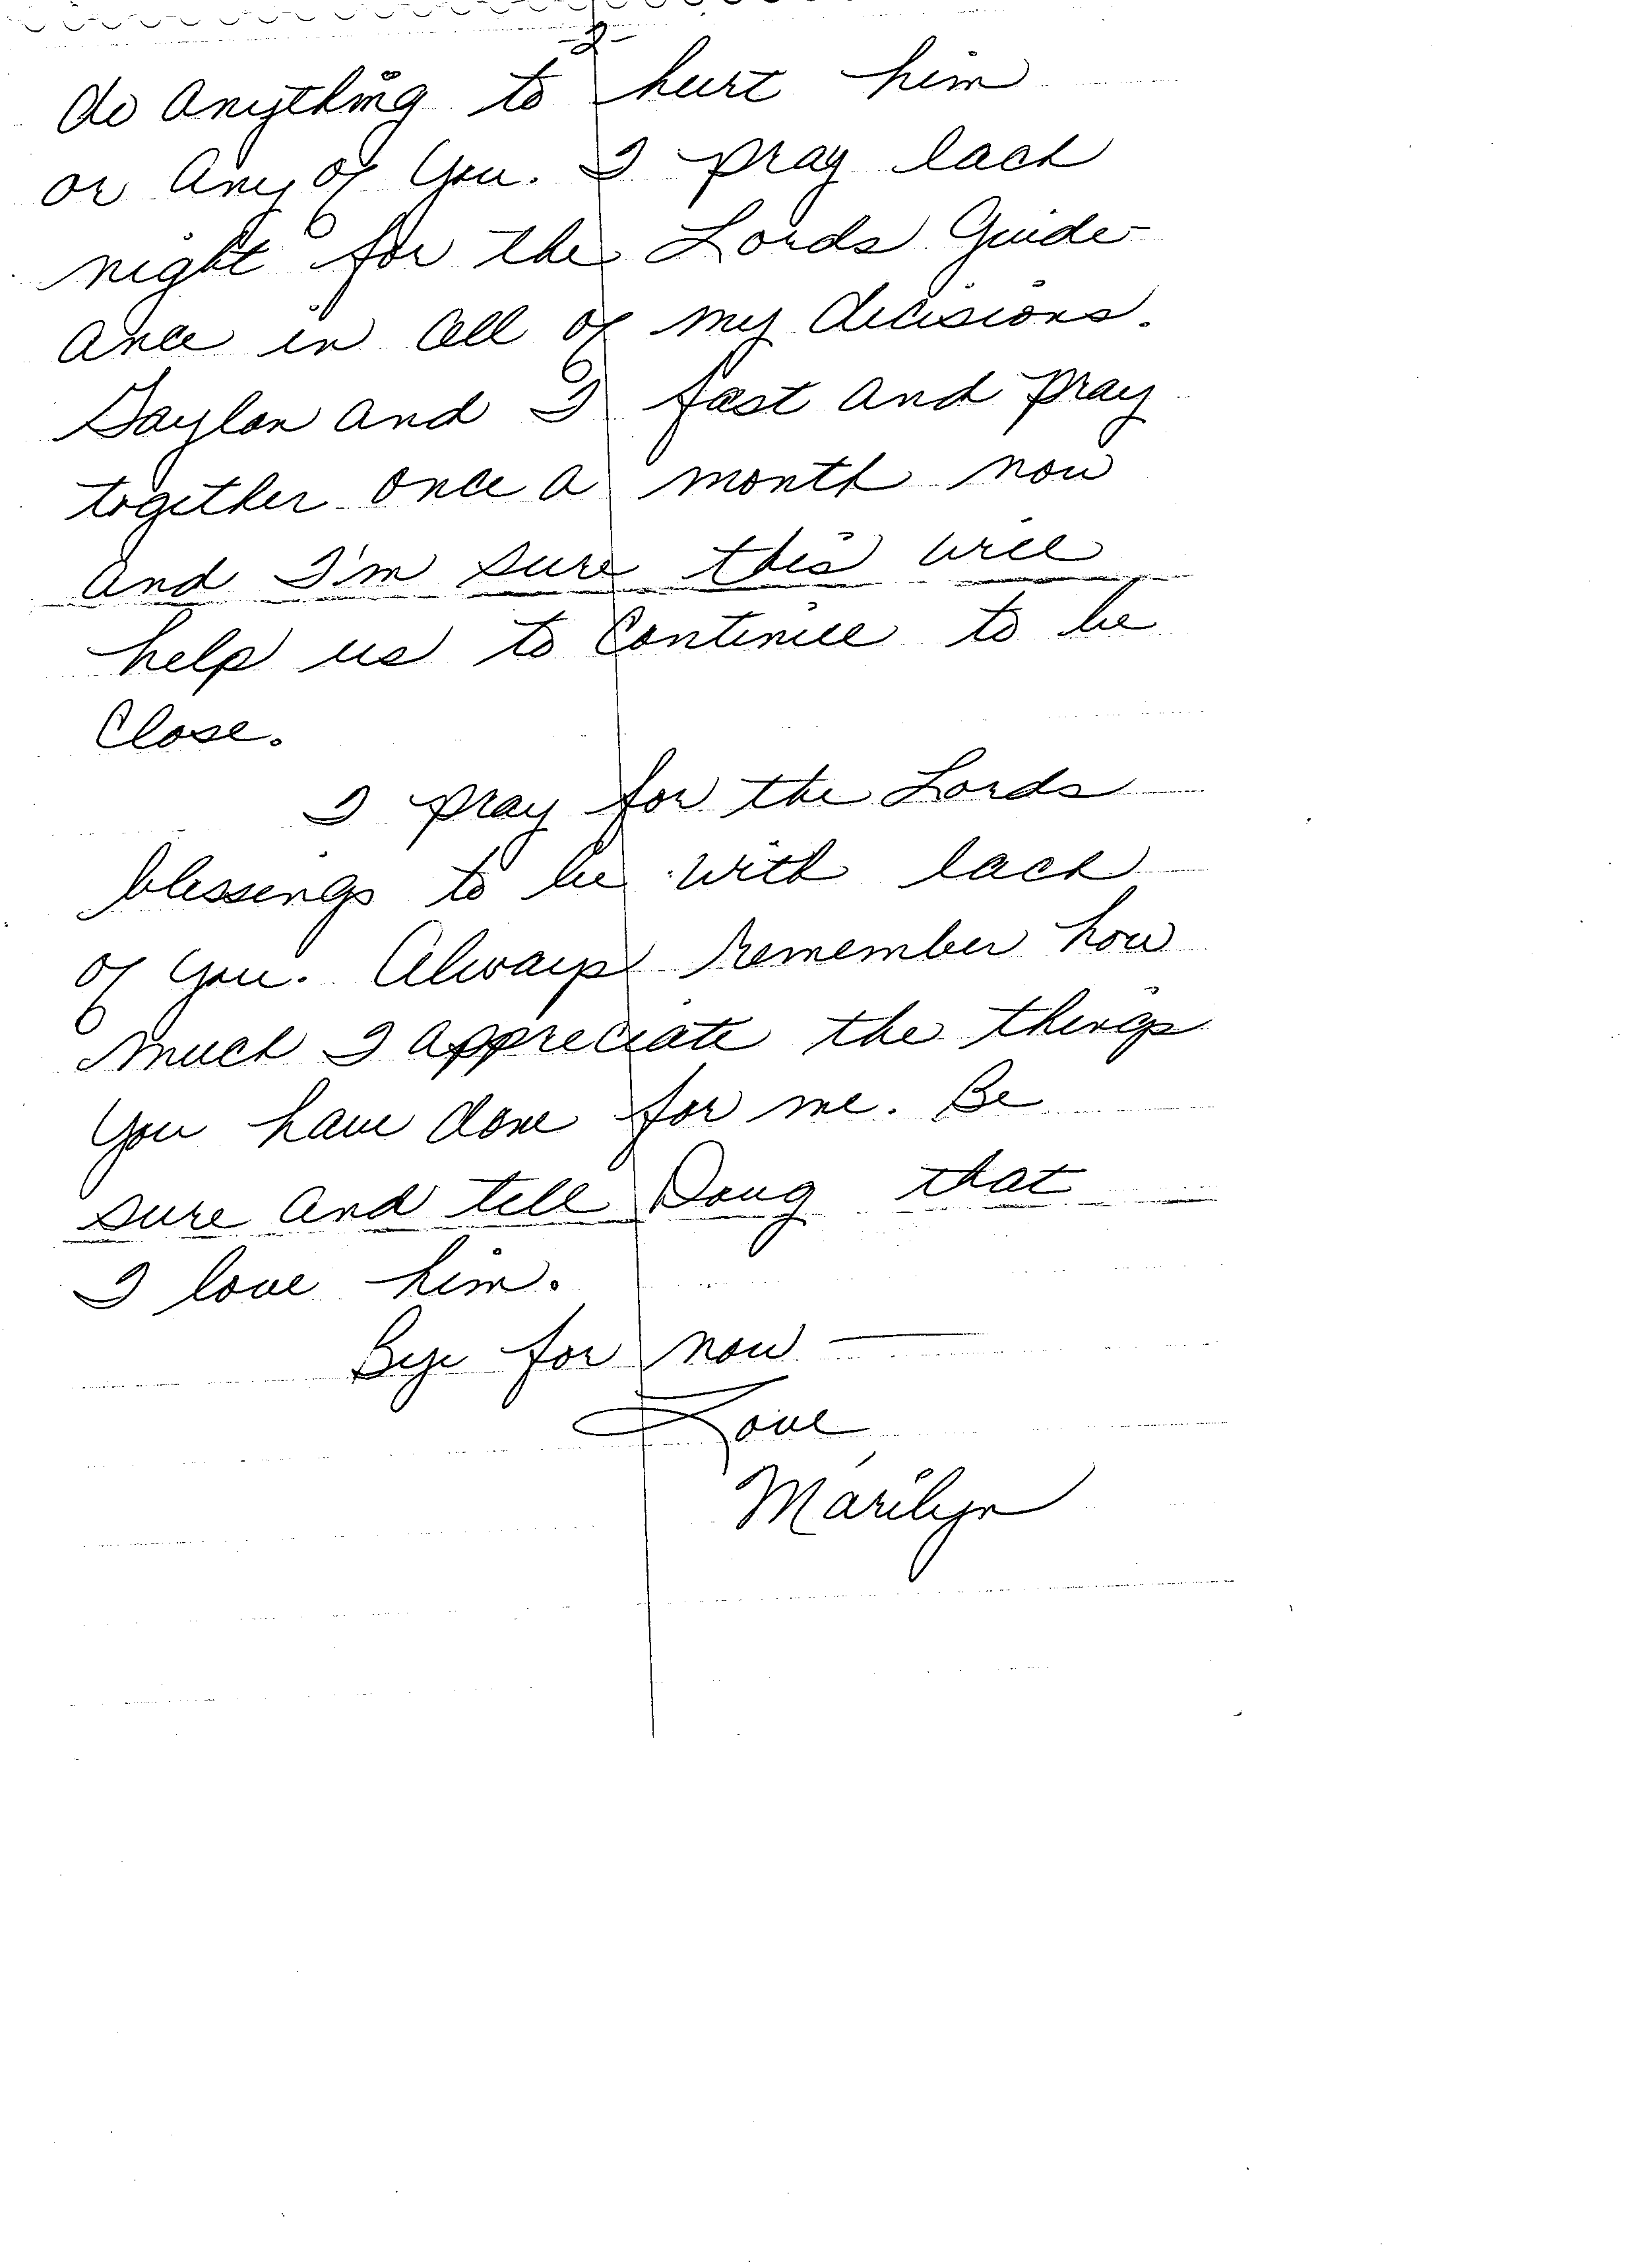 -2-
do anything to hurt him
or any of you. I pray each
night for the Lords Guide-
ance in all of my decisions.
Gaylon and I fast and pray
together once a month now
and I'm sure this will
help us to continue to be
close.
I pray for the Lords
blessings to be with each
of you. Always remember how
much I appreciate the things
you have done for me. Be
sure and tell Doug that
I love him.
Bye for now —
Love,
Marilyn